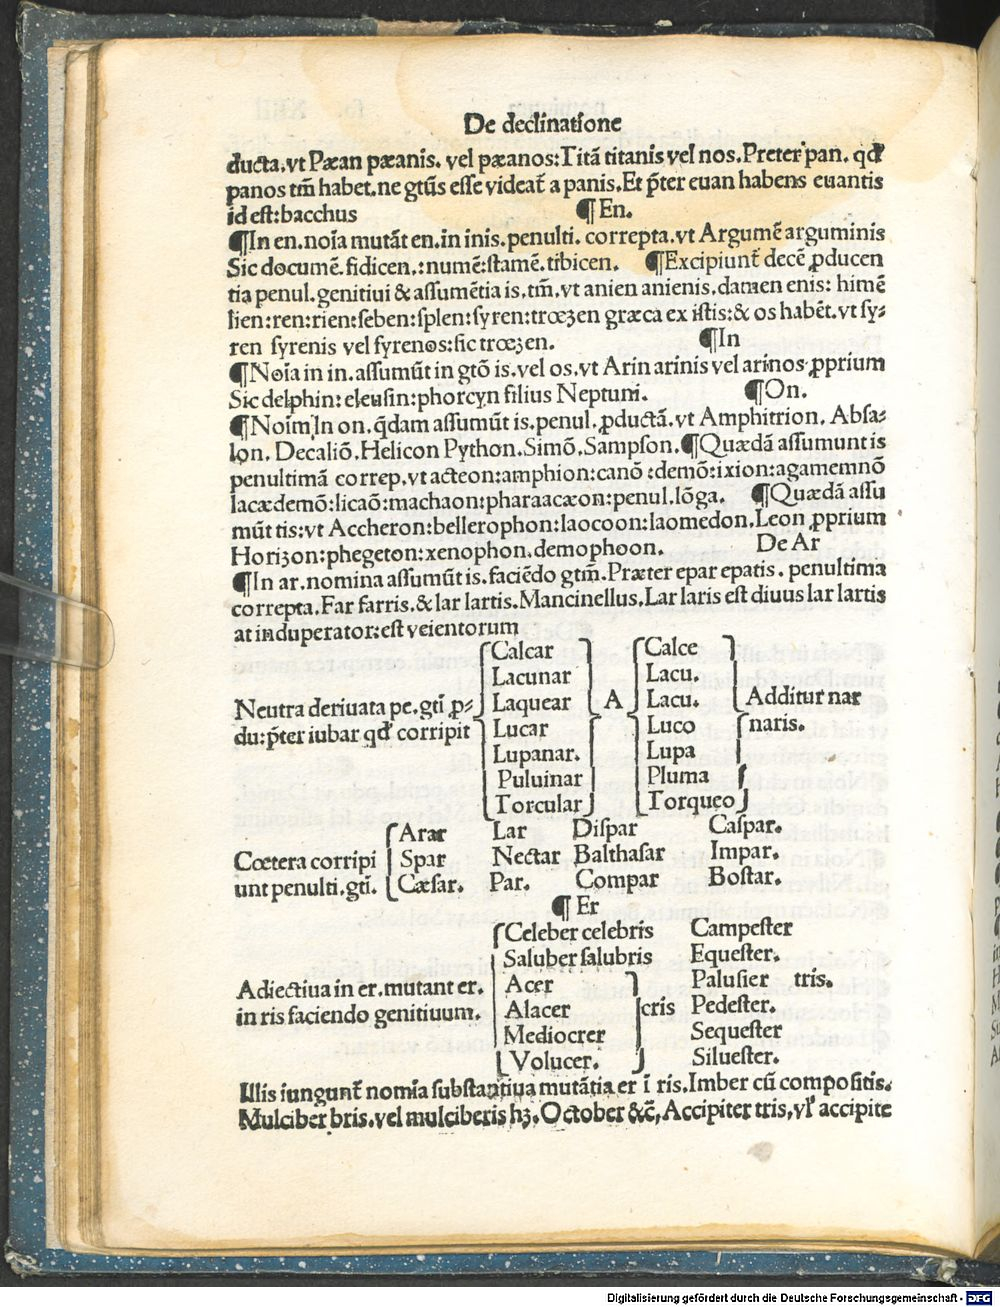 De declinatione
ducta.vt Pæan pæanis. vel pæanos:Titã titanis vel nos.Preter pan. qđ
panos tm̃ habet.ne gtũs esse videat̃ a panis.Et p̃ter euan habens euantis
id est:bacchus ¶En.
¶In en.noĩa mutãt en.in inis.penulti. correpta.vt Argumẽ arguminis
Sic documẽ.fidicen.:numẽ:stamẽ.tibicen. ¶Excipiunt̃ decẽ ꝓducen
tia penul.genitiui & assumẽtia is.tm̃.vt anien anienis.damen enis: himẽ
lien:ren:rien:seben:splen:syren:trœzen græca ex istis:& os habẽt.vt sy⸗
ren syrenis vel syrenos:sic trœzen. ¶In
¶Noĩa in in.assumũt in gtõ is.vel os.vt Arin arinis vel arinos ꝓprium
Sic delphin: eleusin:phorcyn filius Neptuni. ¶On.
¶Noĩm In on. q̃dam assumũt is.penul.ꝓductã.vt Amphitrion. Absa⸗
lon. Decaliõ.Helicon Python.Simõ.Sampson.¶Quædã assumunt is
penultimã correp.vt acteon:amphion:canõ :demõ:ixion:agamemnõ
lacædemõ:licaõ:machaon:pharaacæon:penul.lõga. ¶Quædã assu
mũt tis:vt Accheron:bellerophon:laocoon:laomedon.Leon ꝓprium
Horizon:phegeton:xenophon.demophoon. De Ar
¶In ar.nomina assumũt is.faciẽdo gtm̃.Præter epar epatis. penultima
correpta.Far farris.& lar lartis.Mancinellus.Lar laris est diuus lar lartis
at induperator:est veientorum
Calcar Calce
Lacunar Lacu.
Neutra deriuata pe.gtĩ ꝓ⸗ Laquear A Lacu. Additur nar
du:p̃ter iubar qđ corripit Lucar Luco naris.
Lupanar. Lupa
Puluinar Pluma
Torcular Torqueo
Arar Lar Dispar Caspar.
Cœtera corripi Spar Nectar Balthasar Impar.
unt penulti.gtĩ. Cæsar. Par. Compar Bostar.
¶ Er
Celeber celebris Campester
Saluber salubris Equester.
Adiectiua in er.mutant er. Acer Palusier tris.
in ris faciendo genitiuum. Alacer cris Pedester.
Mediocrer Sequester
Volucer. Siluester.
Illis iungunt̃ nomĩa substantiua mutãtia er ĩ ris.Imber cũ compositis.
Mulciber bris.vel mulciberis hʒ.October &c̃,Accipiter tris,vl̃ accipite
Digitalisierung gefördert durch die Deutsche Forschungsgemeinschaft - DFG